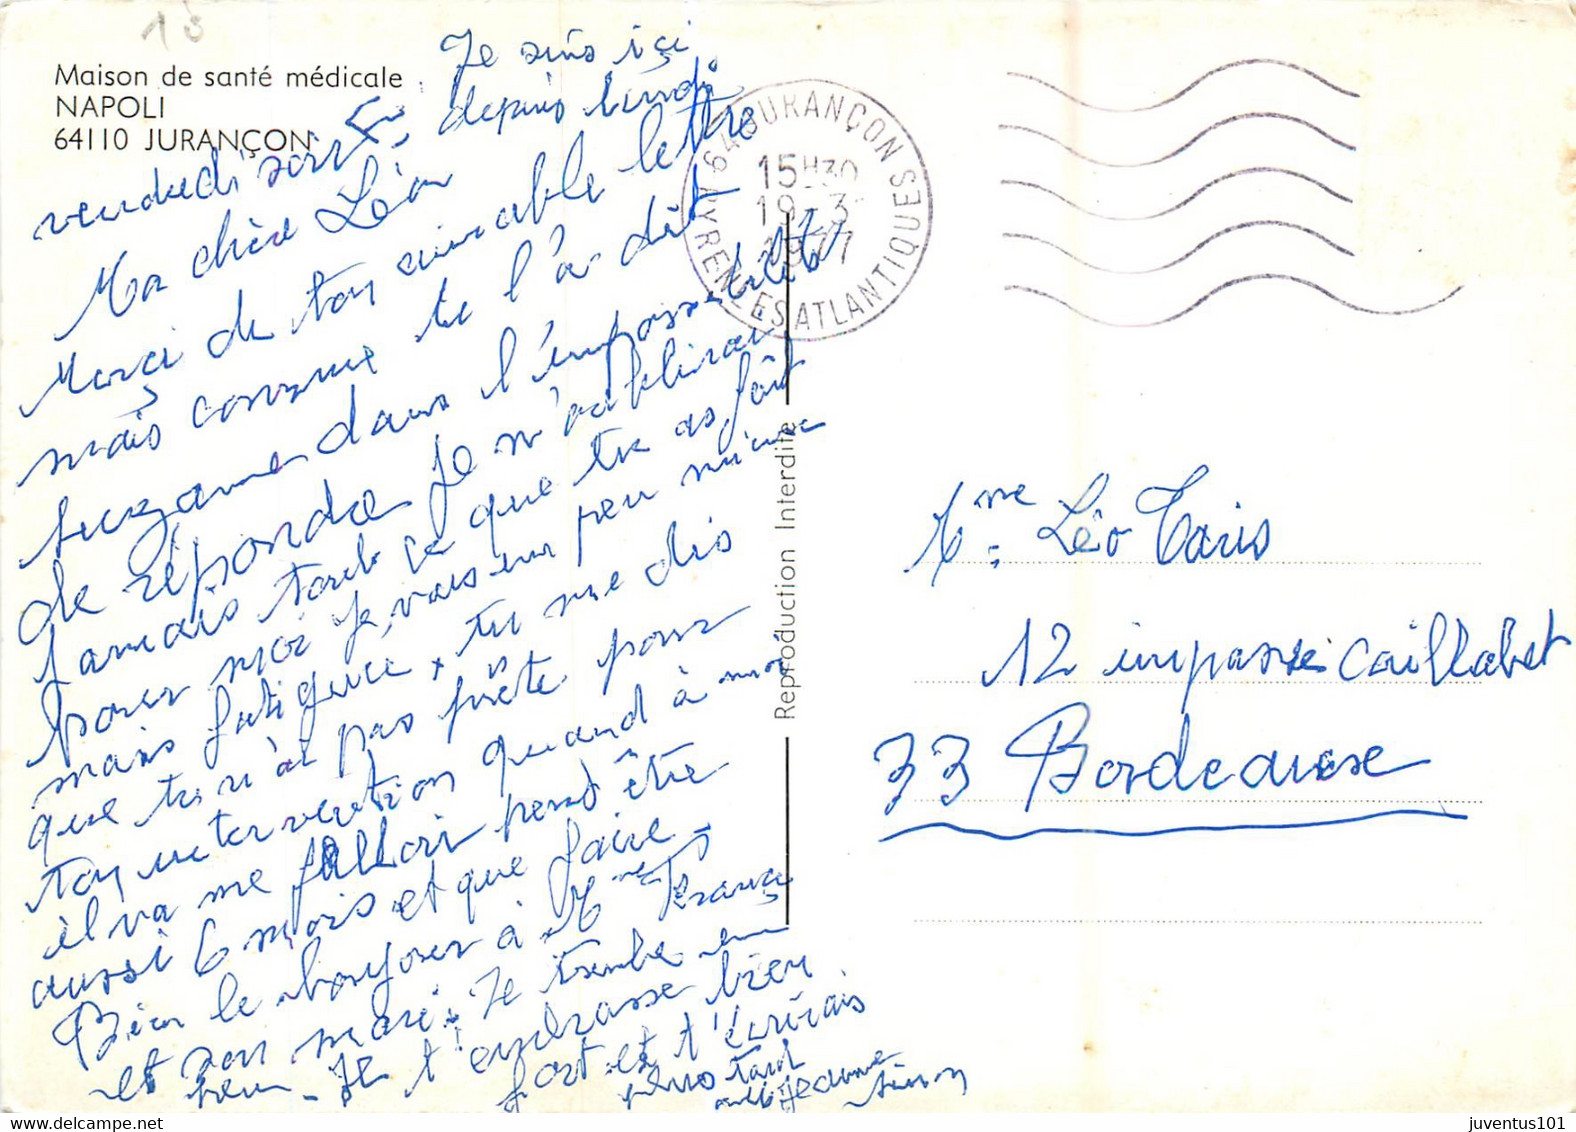 Maison de santé médicale
NAPOLI
64110 JURANÇON
Je suis içi
depuis lundi
vendredi soir
Ma chère Léo
Merci de ton aimable lettre
mais comme te l'a dit
suzanne dans l'impossibilité
de répondre Je n'oublirai
Jamais tout ce que tu as fait
pour moi Je vais un peu mieux
mais fatiguée, tu me dis
que tu n'ai pas prête pour
ton intervention quand à moi
il va me falloir pend être
aussi 6 mois et que faire
Bien le bonjour à Mme
et son mari. Je tremble un
peu - Je t'embrasse bien
fort et t'écrirais
plus tard
Jeanne
Simon
64 JURANÇON
15H30
19-3
1977
PYRENEES ATLANTIQUES
Reproduction Interdite
Mme Léo Taris
12 impasse Caillabet
33 Bordeaux
www.delcampe.net
juventus101